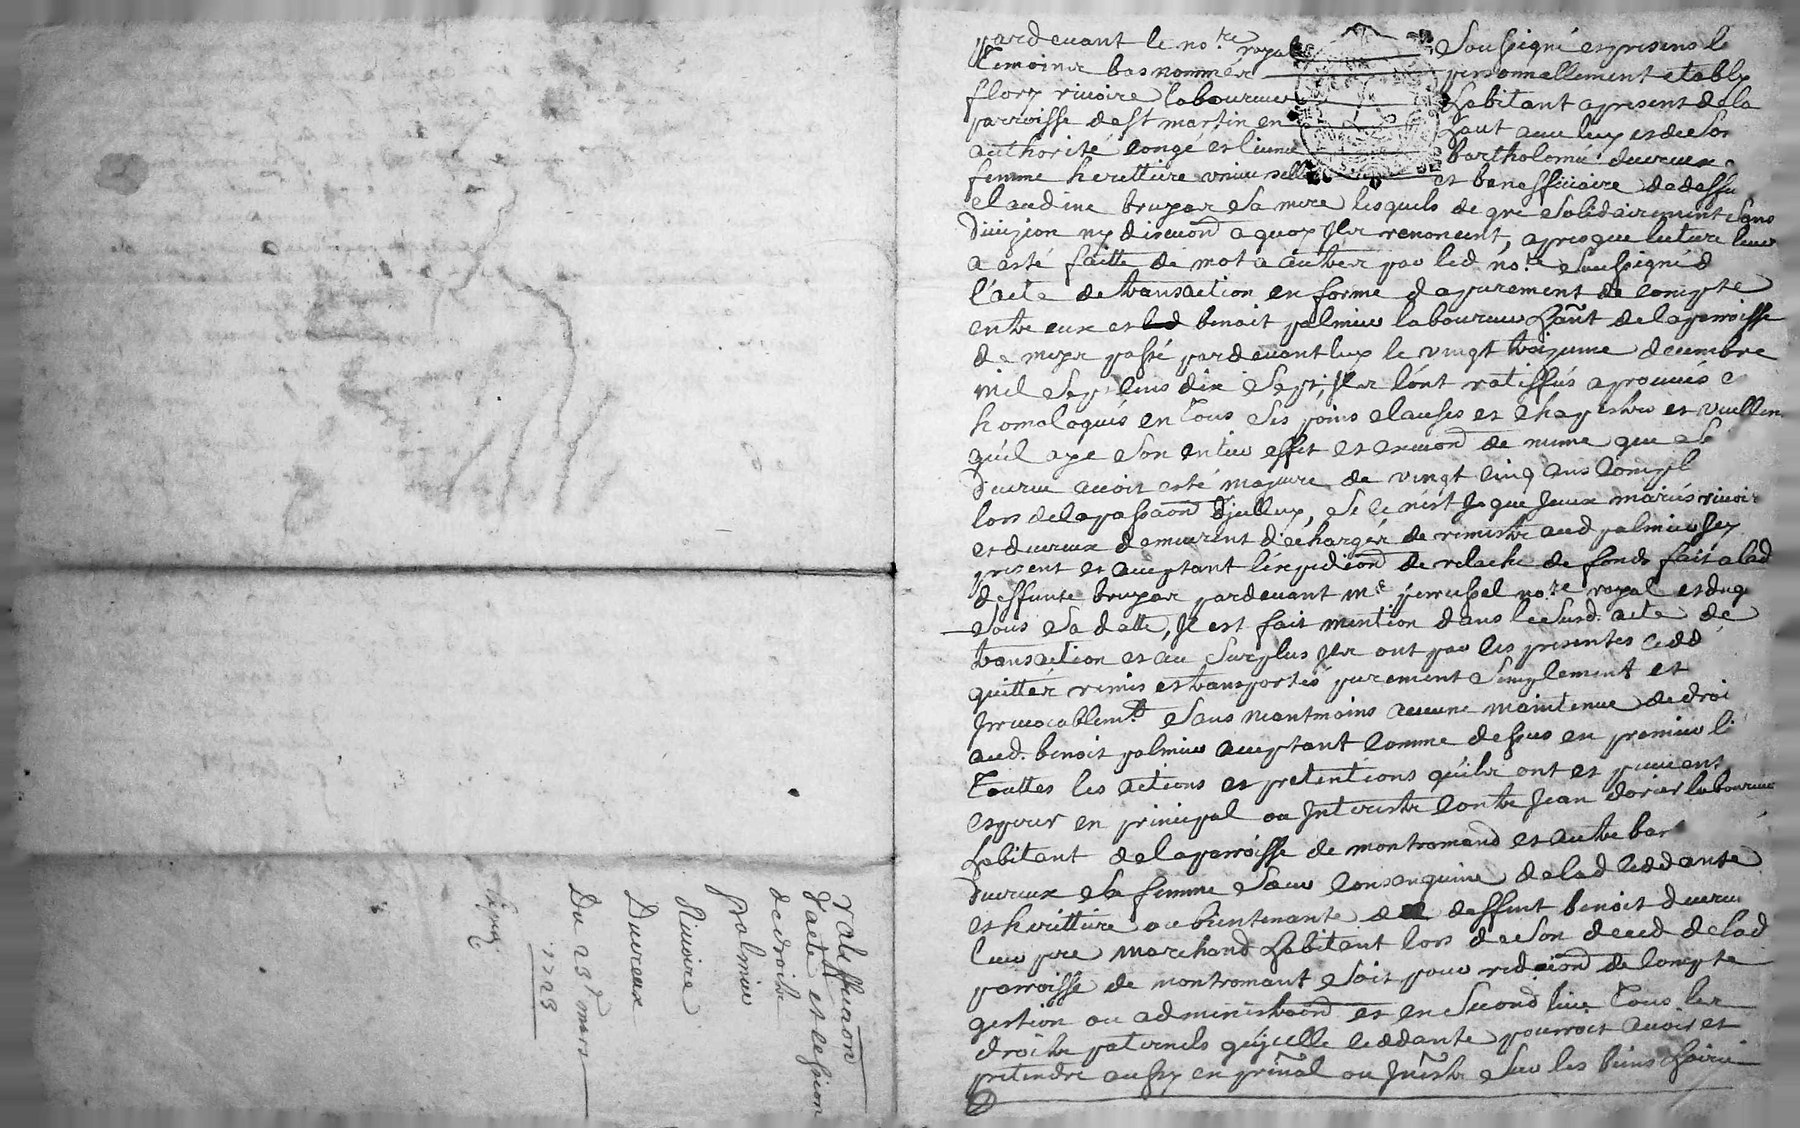 pardevant le no.re royal soussigné et presens le
temoins bas nommés personnellement estably
flory rivoire laboureur habitant a present de la
parroisse de st martin en haut avec luy et de son
authorité congé et licence bartholomie ducreux
femme herittiere universelle et beneffiiaire de deffu
claudine bruyas sa mere lesquels de gré solidairement sans
division ny discuon a quoy jls renoncent, apres que lecture leur
a esté faitte de mot a autres par led no.re soussigné d
l'acte de transaction en forme d apurement de compte
entre eux et benoit palmier laboureur hant de la parroisse
de meys passé pardevant luy le vingt troizieme decembre
mil sept cens dix sept, jls lont ratiffiés aprouvés e
homologués en tous ses poins clauses et chapistres et veullen
quil aye son entier effet et execuon de meme que sy
ducreux avoit esté majeure de vingt cinq ans compl
lors de la passaon djcelluy, sy ce n'est que jceux mariés rivoire
et ducreux demeurent décharges de remettre aud palmier jcy
present et acceptant l'expedion de relache de fonds fait a lad
deffunte bruyas pardevant me perrussel no.re royal et duq
sous sa datte, jl est fait mention dans le susd. acte de
transaction et au surplus jls ont par les presentes cedd
quittés remis et transportés purement simplement et
jrrevocablem.t sans neantmoins aucune maintenue de droi
aud. benoit palmier acceptant comme dessus en premier li
touttes les actions et pretentions quils ont et peuvent
esperer en principal ou jnterests contre jean dorier laboureur
habitant de la parroisse de montromand et autre bar
ducreux sa femme soeur consanguine de lad ceddante
et herittiere ou bientenante de deffunt benoit ducreux
leur pere marchand habitant lors de son deced de lad
parroisse de montromant soit pour redicion de compte
gestion ou administraon et en second lieu tous les
droits paternels qujcelle ceddante pourroit avoir et
pretendre aussy en prinal ou jnrests sur les biens
Du 23e mars
1723
Ducreux
Rivoire
palmier
de droits
l'acte et cession